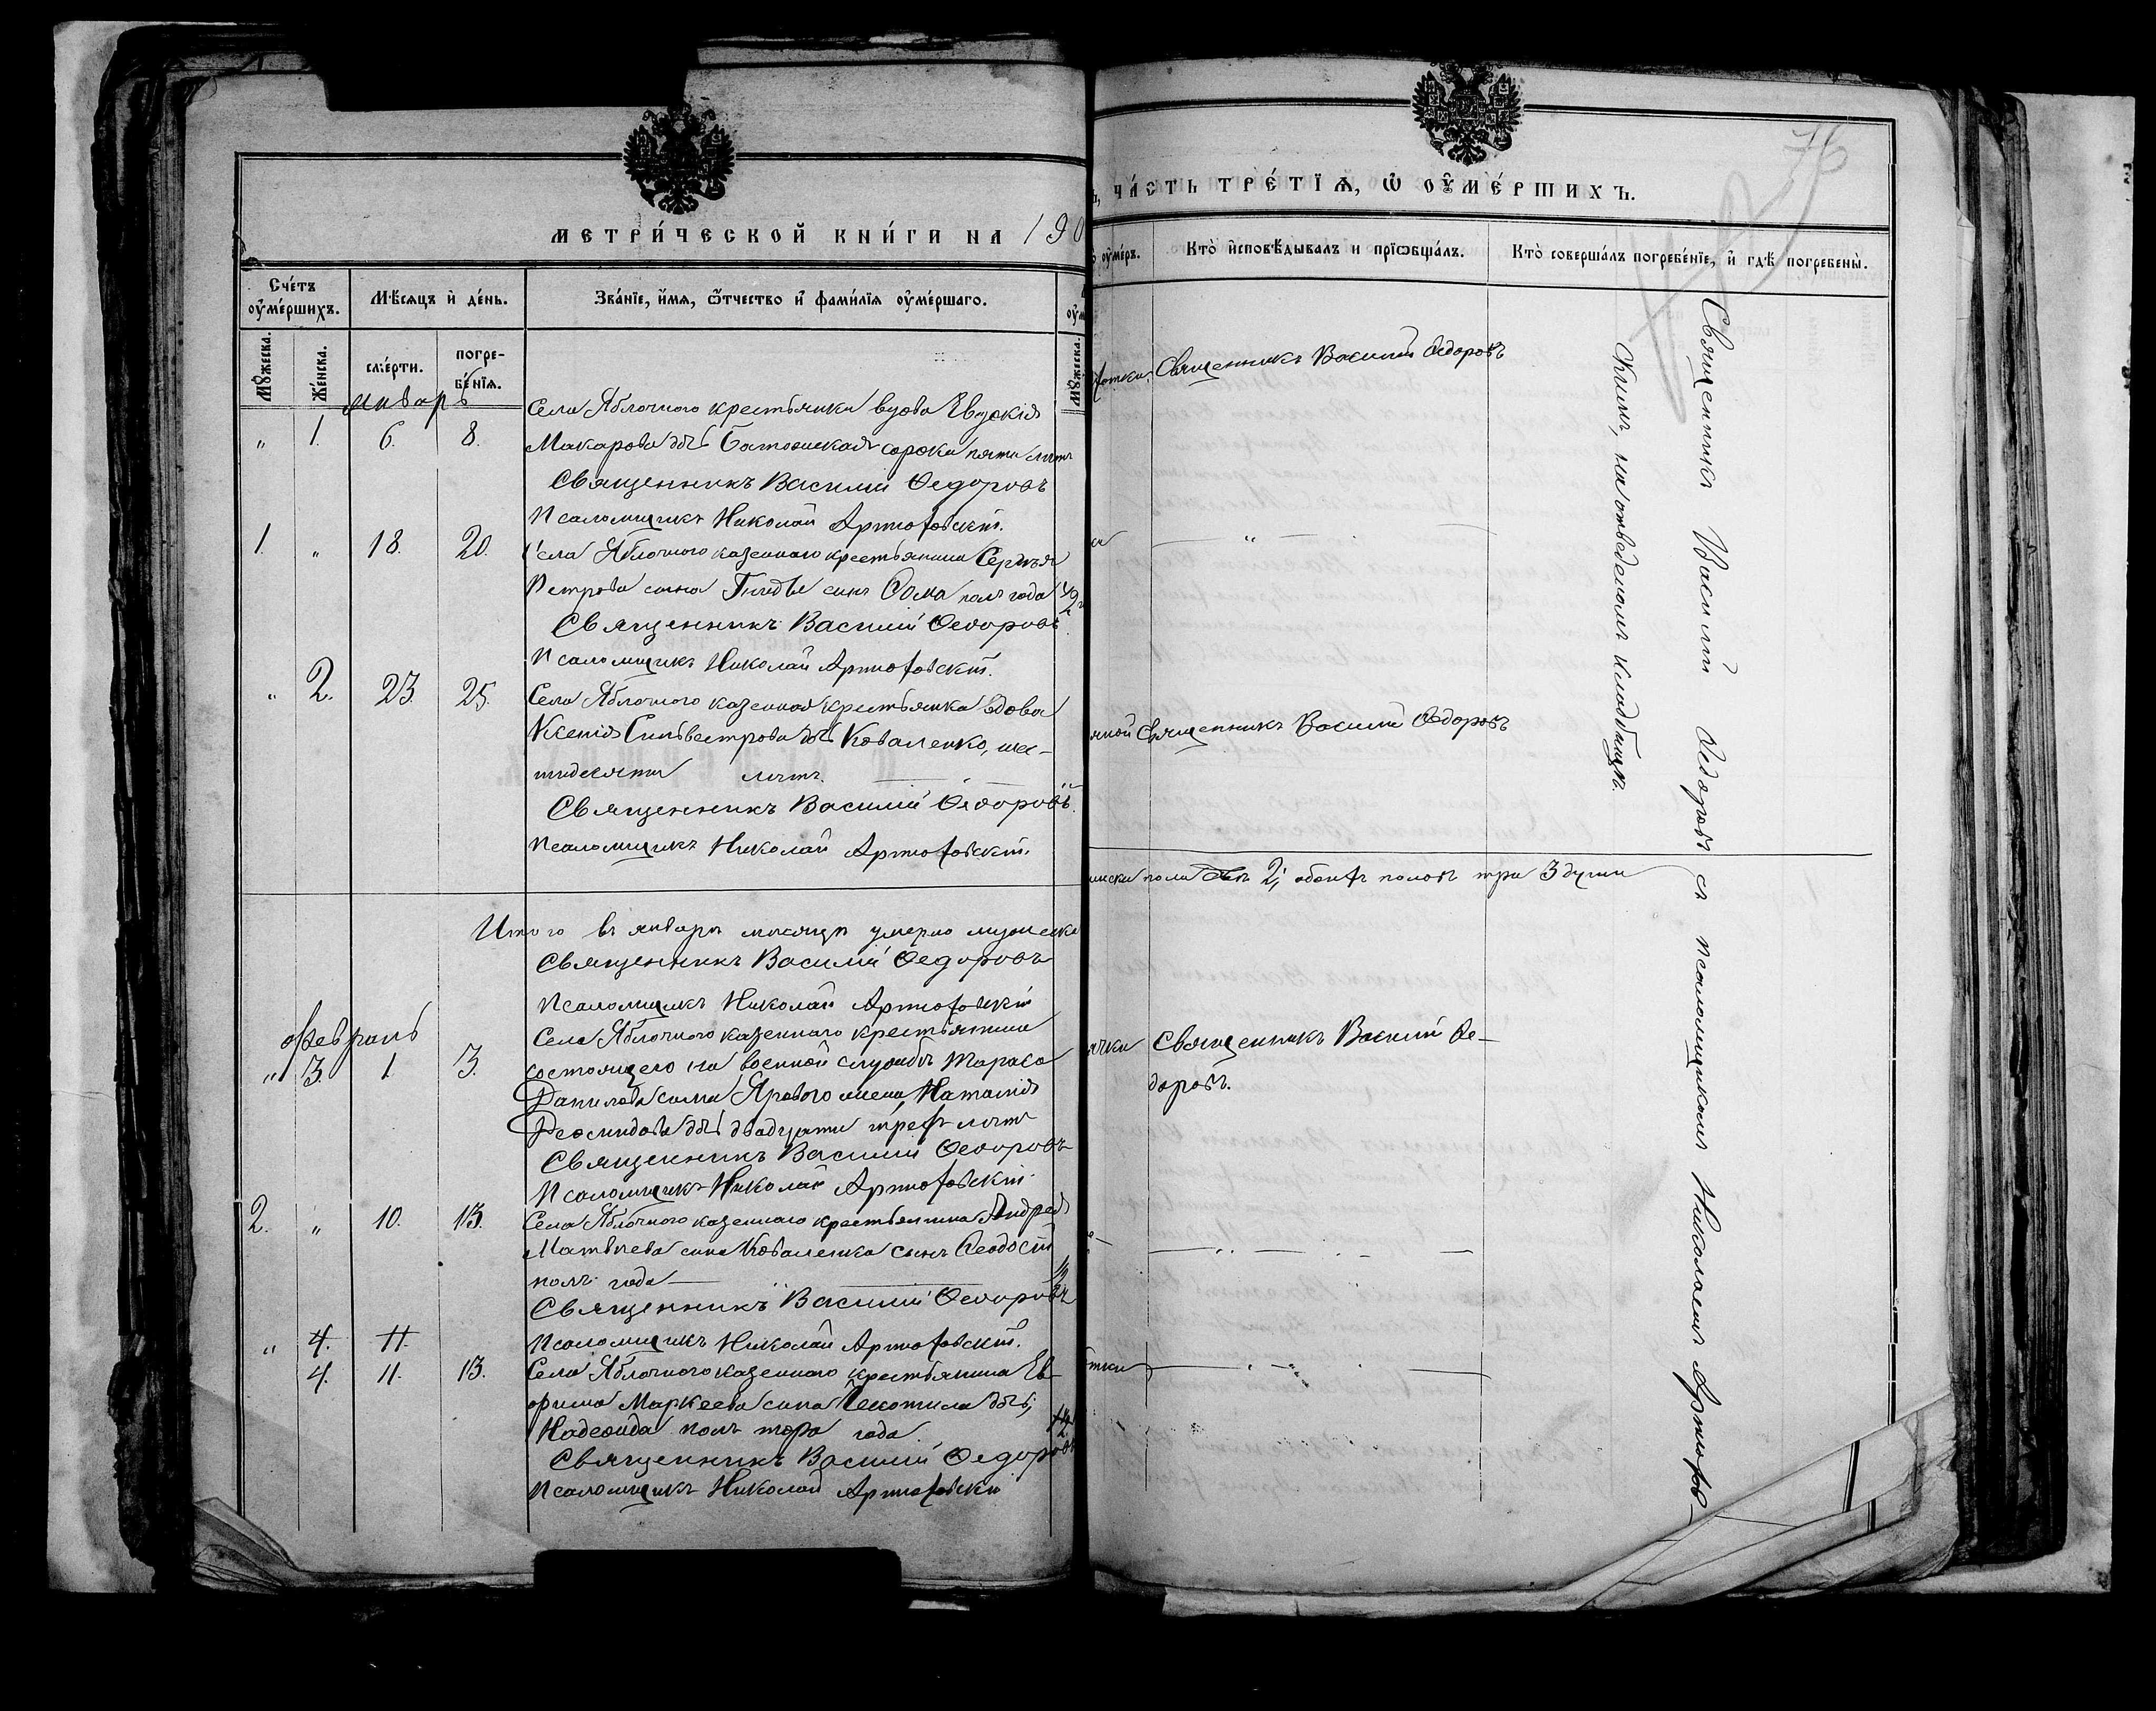 МЕТРИ́ЧЕСКОЙ КНИ́ГИ НА 190
Сче́тъ оу҆ме́ршихъ.
Мѣ́сяцъ и҆ де́нь.
Зва́нїе, и҆́мя, ѻ҆́тчество и҆ фами́лїя оу҆ме́ршаго.
Мꙋ́жеска.
Же́нска.
сме́рти.
погре-
бе́нїя.
Мꙋ́жеска.
Январь
Села Яблочного крестьянка вдова Евдокія
„ 1. 6. 8.
Макарова дчь сорока пяти лѣтъ
Священникъ Василій Ѳедоровъ
Псаломщикъ Николай Артюховскій.
1. „ 18. 20.
Села Яблочного казеннаго крестьянина Сергѣя
Петрова сына сынъ Ѳома полъ года 1/2
Священникъ Василій Ѳедоровъ
Псаломщикъ Николай Артюховскій.
„ 2. 23. 25.
Села Яблочного казенная крестьянка вдова
Ксенія Сильвестрова дчь Коваленко, шес-
тидесяти лѣтъ.
Священникъ Василій Ѳедоровъ.
Псаломщикъ Николай Артюховскій.
Итого въ январѣ мѣсяцѣ умерло мужеска
Священникъ Василій Ѳедоровъ
Псаломщикъ Николай Артюховскій
Февраль
Села Яблочного казеннаго крестьянина
„ 3. 1. 3.
состоящего на военной службѣ Тараса
Данилова сына Ярового жена Наталія
дчь двадцати трехъ лѣтъ
Священникъ Василій Ѳедоровъ
Псаломщикъ Николай Артюховскій.
2. „ 10. 13.
Села Яблочного казеннаго крестьянина Андрея
Матвѣева сына Коваленка сынъ Ѳеодосій
полъ года 1/2
Священникъ Василій Ѳедоровъ
„ 4. 11.
Псаломщикъ Николай Артюховскій.
4. 11. 13.
Села Яблочного казеннаго крестьянина Ев-
фима Маркеева сына дчь,
Надежда полъ тора года
Священникъ Василій Ѳедоровъ
Псаломщикъ Николай Артюховскій
76
ЧА́СТЬ ТРЕ́ТЇѦ, Ѡ҆ ОУ҆МЕ́РШИХЪ.
оу҆ме́ръ.
Кто̀ и҆сповѣ́дывалъ и прїѡбща́лъ.
Кто̀ соверша́лъ погребе́нїе, и҆ гдѣ̀ погребены̀.
Священникъ Василій Ѳедоровъ
„
Священникъ Василій Ѳедоровъ
женска пола 2; обоихъ половъ три 3 души
Священникъ Василій Ѳе-
доровъ.
Священникъ Василій Ѳедоровъ съ псаломщикомъ Николаемъ Артюхов-
скимъ, на отведенномъ кладбищѣ.